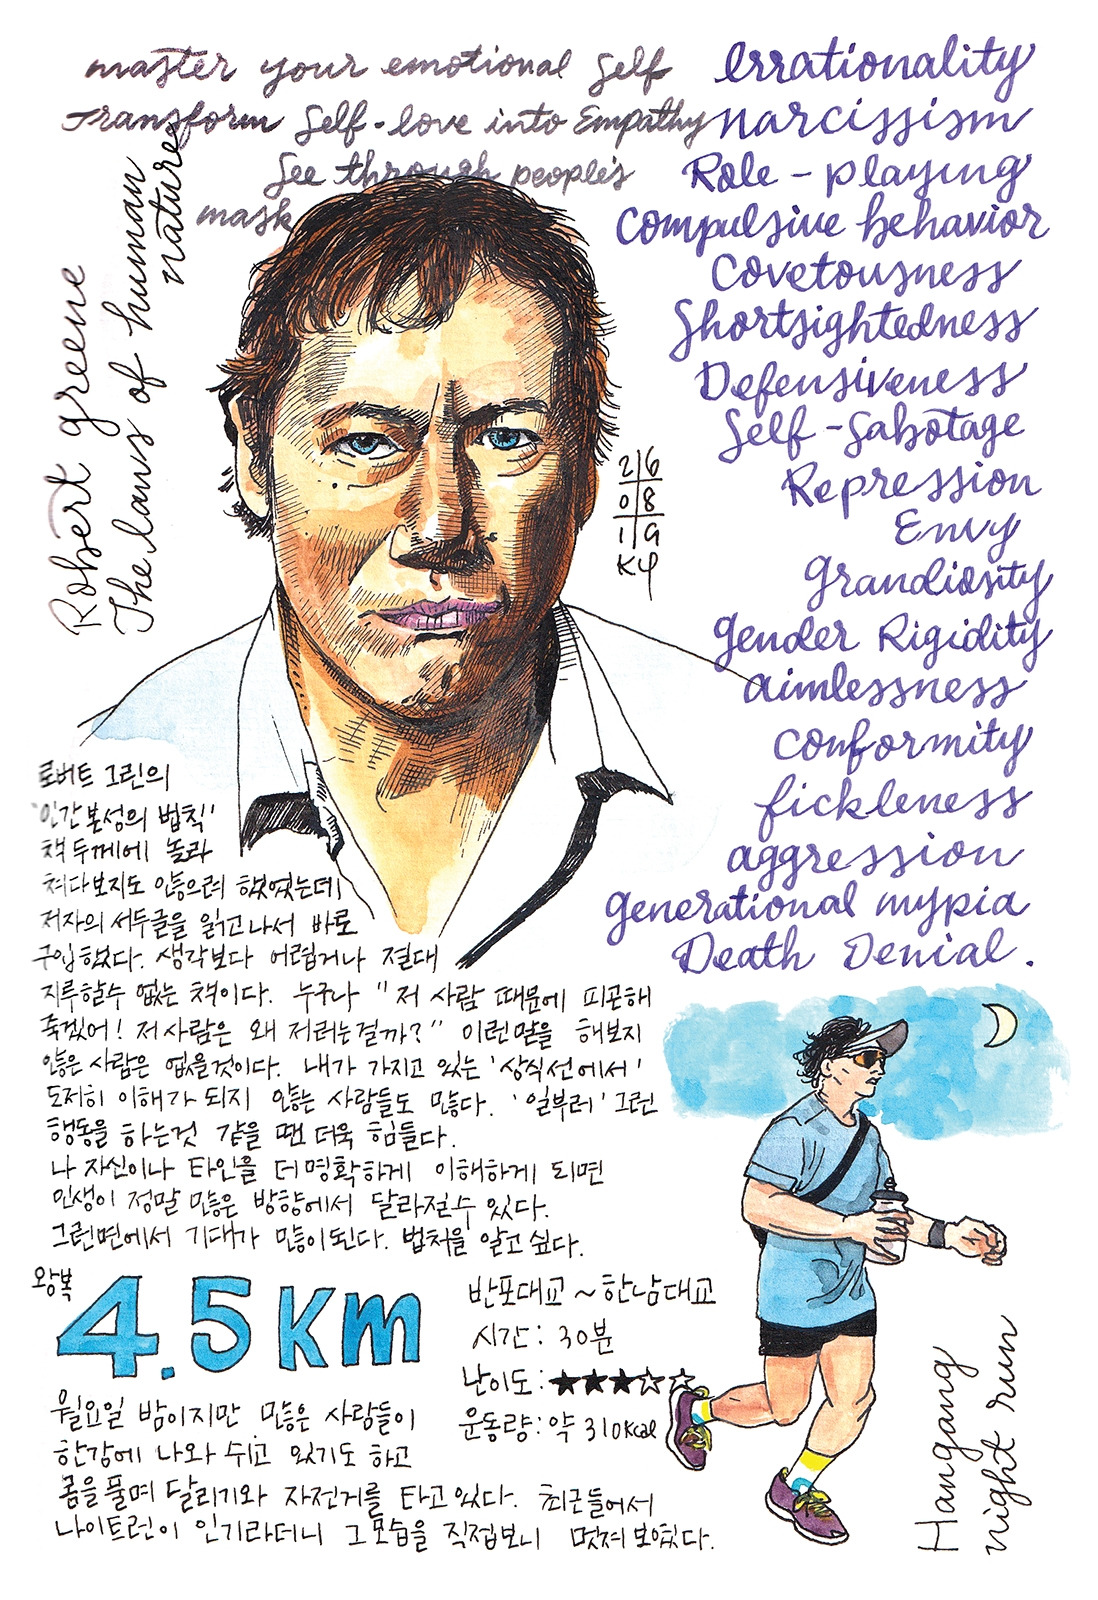 master your emotional self
Transform self-love into Empathy
See through people's
mask
Robert greene
The laws of human
nature
Irrationality
narcissism
Role-playing
compulsive behavior
covetousness
Shortsightedness
Defensiveness
Self-Sabotage
Repression
Envy
grandiosity
gender Rigidity
aimlessness
conformity
fickleness
aggression
generational mypia
Death Denial.
26
08
19
KY
로버트 그린의
'인간본성의 법칙'
책두께에 놀라
쳐다보지도 않으려 했었는데
저자의 서두글을 읽고나서 바로
구입했다. 생각보다 어렵거나 절대
지루할수 없는 책이다. 누구나 "저 사람 때문에 피곤해
죽겠어! 저사람은 왜 저러는걸까?" 이런말을 해보지
않은 사람은 없을것이다. 내가 가지고 있는 '상식선에서'
도저히 이해가 되지 않는 사람들도 많다. '일부러' 그런
행동을 하는것 같을 땐 더욱 힘들다.
나 자신이나 타인을 더명확하게 이해하게 되면
인생이 정말 많은 방향에서 달라질수 있다.
그런면에서 기대가 많이된다. 법칙을 알고 싶다.
왕복
4.5km
반포대교 ~ 한남대교
시간: 30분
난이도: ★★★☆☆
운동량: 약 310kcal
월요일 밤이지만 많은 사람들이
한강에 나와 쉬고 있기도 하고
몸을풀며 달리기와 자전거를 타고있다. 최근들어서
나이트런이 인기라더니 그모습을 직접보니 멋져보였다.
Hangang
night run